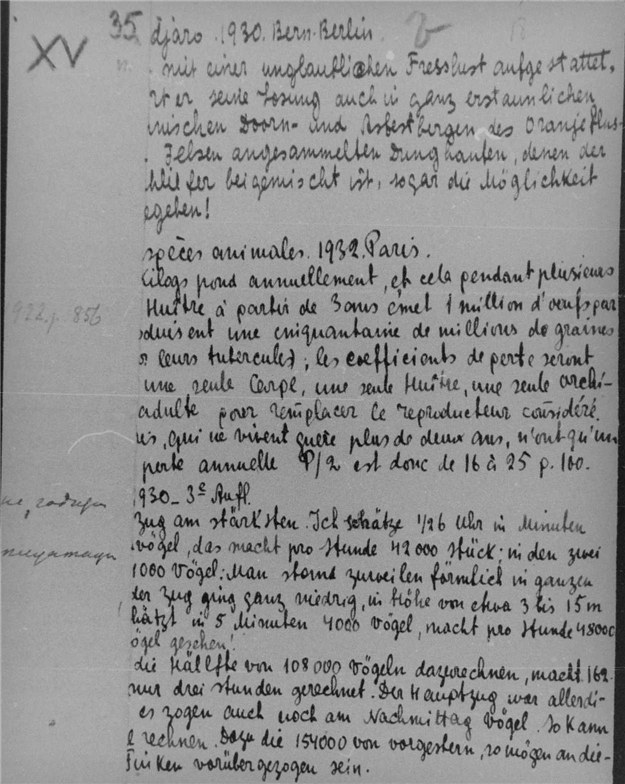 XV 35 djaro. 1930. Bern-Berlin.
mit einer unglaublichen Fresslust aufgestattet,
rt er seine Losung auch in ganz erstaunlichen
nischen Doorn- und Asbestbergen des Oranjeflus-
Felsen angesammelten Dunghaufen, denen der
hliefer beigemischt ist, sogar die Möglichkeit
egeben!
spèces animales. 1932. Paris.
Kilogs pond annuellement, et cela pendant plusieurs
Huître à partir de 3 ans émet 1 million d'oeufs par
1922. p. 856
duisent une cinquantaine de millions de graines
leurs tubercules); les coefficients de perte seront
une seule Carpe, une seule Huître, une seule orchi-
adulte pour remplacer le reproducteur considéré.
is, qui ne vivent guère plus de deux ans, n'ont qu'un
perte annuelle P/2 est donc de 16 à 25 p. 100.
930 - 3e Aufl.
Zug am stärksten. Ich schätze 1/26 Uhr in Minuten
vögel, das macht pro Stunde 42000 Stück; in den zwei
1000 Vögel: Man stand zuweilen förmlich in ganzen
der Zug ging ganz niedrig, in Höhe von etwa 3 bis 15 m
hätzt in 5 Minuten 4000 Vögel, macht pro Stunde 48000
ögel gesehen!
die Hällfte von 108 000 Vögeln dazurechnen, macht 162
nur drei Stunden gerechnet. Der Hauptzug war allerdi-
es zogen auch noch am Nachmittag Vögel. So kann
rechnen. Dazu die 154000 von vorgestern, so mögen an die-
Finken vorübergezogen sein.